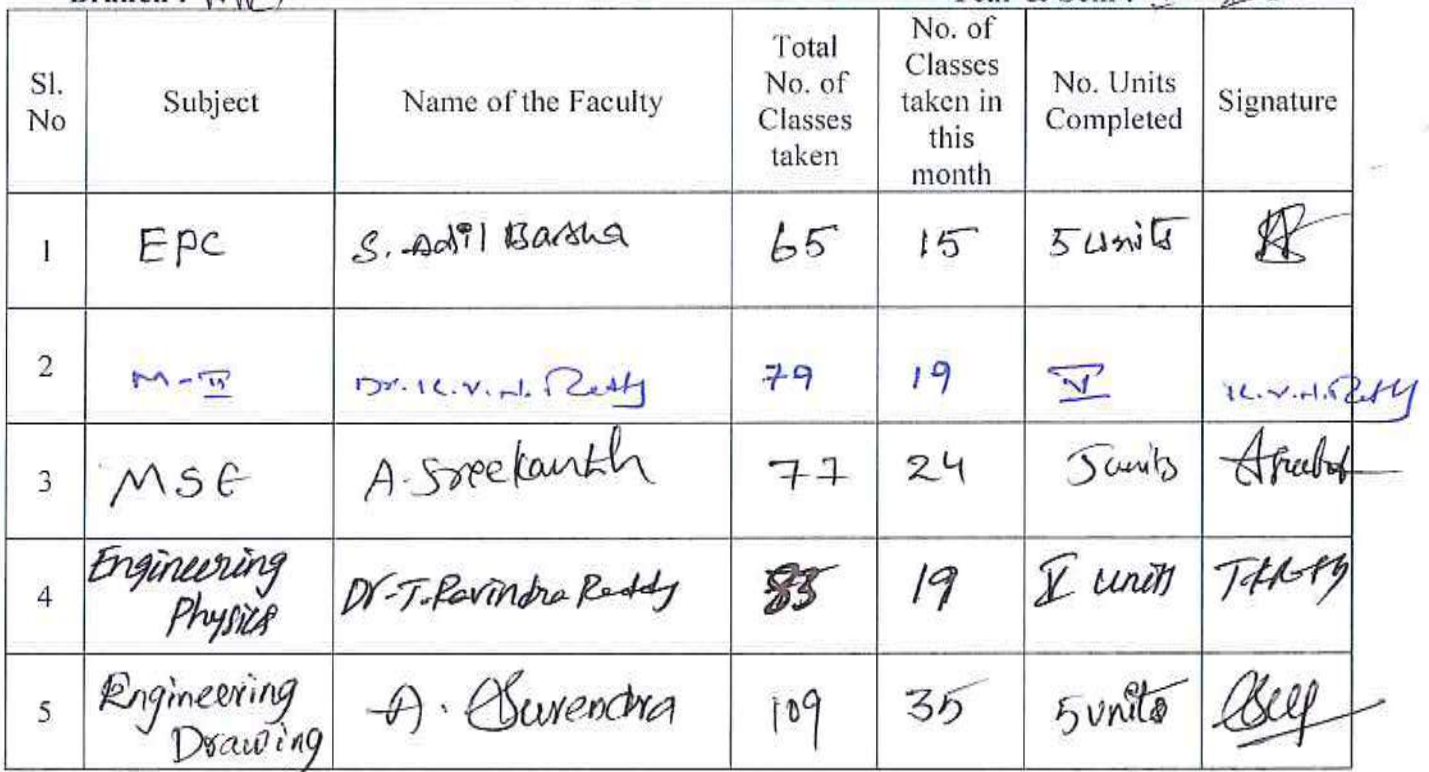 Sl. No | Subject | Name of the Faculty | Total No. of Classes taken | No. of Classes taken in this month | No. Units Completed | Signature
1 | EPC | S. Adil Basha | 65 | 15 | 5 units |
2 | M-II | Dr. K.V.N. Reddy | 79 | 19 | V | K.V.N.Reddy
3 | MSE | A. Sreekanth | 77 | 24 | 5 units |
4 | Engineering Physics | Dr-T. Ravindra Reddy | 83 | 19 | V units |
5 | Engineering Drawing | A. Surendra | 109 | 35 | 5 units |